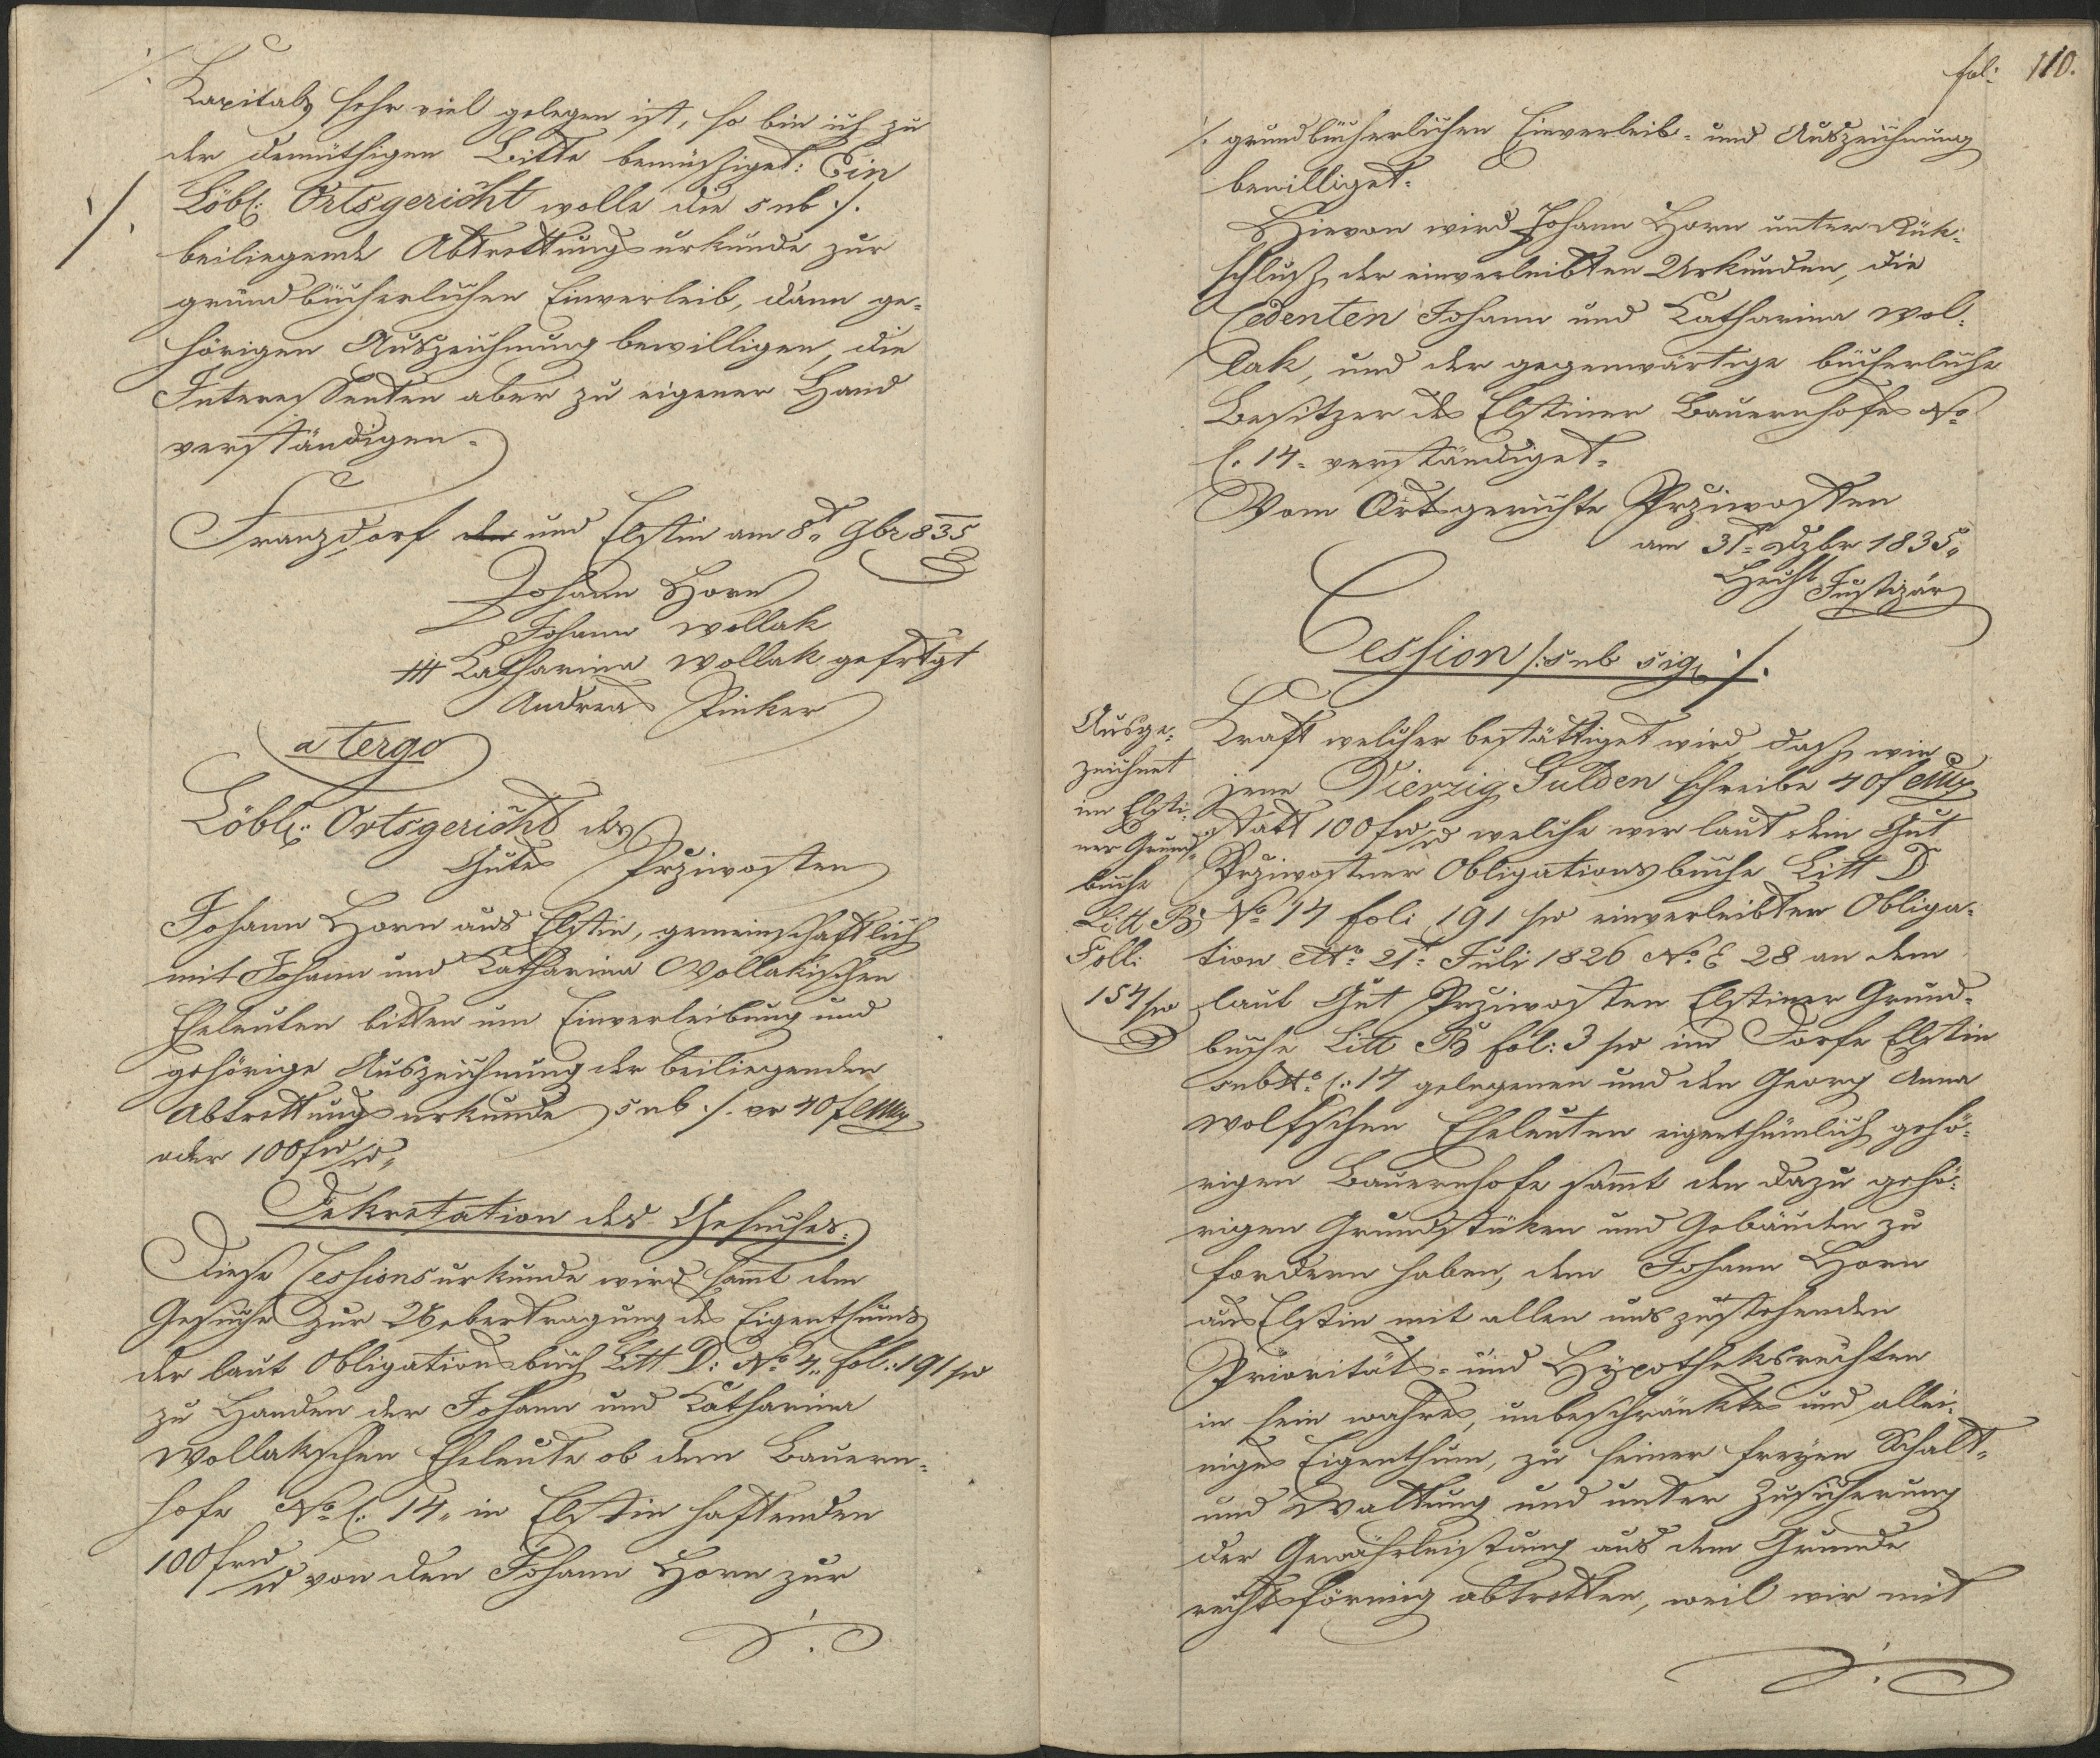 ./.
Kapitals sehr viel gelegen ist, so bin ich zu
der demüthigen Bitte bemüssiget: Ein
Löbl: Ortsgericht wolle die sub ./.
./.
beiliegende Abtrettungsurkunde zur
grundbücherlichen Einverleib, dann ge-
hörigen Auszeichnung bewilligen, die
Interessenten aber zu eigener Hand
verständigen.
Franzdorf und Elstin am 8t 9br 835
Johann Horn
Johann Wollak
+++ Katharina Wollak gefrtgt
Andreas Pinker
a tergo
Löbl: Ortsgericht des
Gutes Prziwosten
Johann Horn aus Elstin, gemeinschaftlich
mit Johann und Katharina Wollakischen
Eheleuten bitten um Einverleibung und
gehörige Auszeichnung der beiliegenden
Abtrettungsurkunde sub ./. pr 40 f CMz
oder 100 f w w.
Dekretation des Gesuches.
Diese Cessionsurkunde wird sammt dem
Gesuche zur Uebertragung des Eigenthums
der laut Obligationsbuch Litt D: No 4. fol: 191 sw
zu Handen der Johann und Katharina
Wollakschen Eheleute ob dem Bauern-
hofe No C. 14. in Elstin haftenden
100 f w w von den Johann Horn zur
./.
fol: 110.
./. grundbücherlichen Einverleib- und Auszeichnung
bewilliget.
Hievon wird Johann Horn unter Rük-
schluß der einverleibten Urkunden, die
Cedenten Johann und Katharina Wol-
lak, und der gegenwärtige bücherliche
Besitzer des Elstiner Bauernhofes No
C. 14. verständiget.
Vom Ortsgerichte Prziwosten
am 31t Dzbr 1835.
Hecht Justiziär
Cession /: sub sig: ./.
Ausge-
zeichnet
im Elsti-
ner Grund-
buche
Litt B
Foll:
154 sw
Kraft welcher bestättiget wird, daß wir
jene Vierzig Gulden schreibe 40 f CMz
statt 100 f w w welche wir laut dem Gut
Prziwostner Obligationsbuche Litt D
No 14 fol: 191 sw einverleibten Obliga-
tion dto 21t Juli 1826 No E 28 an dem
laut Gut Prziwosten Elstiner Grund-
buche Litt B fol: 3 sw im Dorfe Elstin
sub No C: 14 gelegenen und den Georg Anna
Wolfschen Eheleuten eigenthümlich gehö-
rigen Bauernhofe sammt den dazu gehö-
rigen Grundstüken und Gebäuden zu
fordern haben, dem Johann Horn
aus Elstin mit allen uns zustehenden
Prioritäts- und Hypotheksrechten
in sein wahres, unbeschränktes und allei-
niges Eigenthum, zu seiner freyen Schalt-
und Waltung und unter Zusicherung
der Gewährleistung aus dem Grunde
rechtsförmig abtretten, weil wir mit
./.